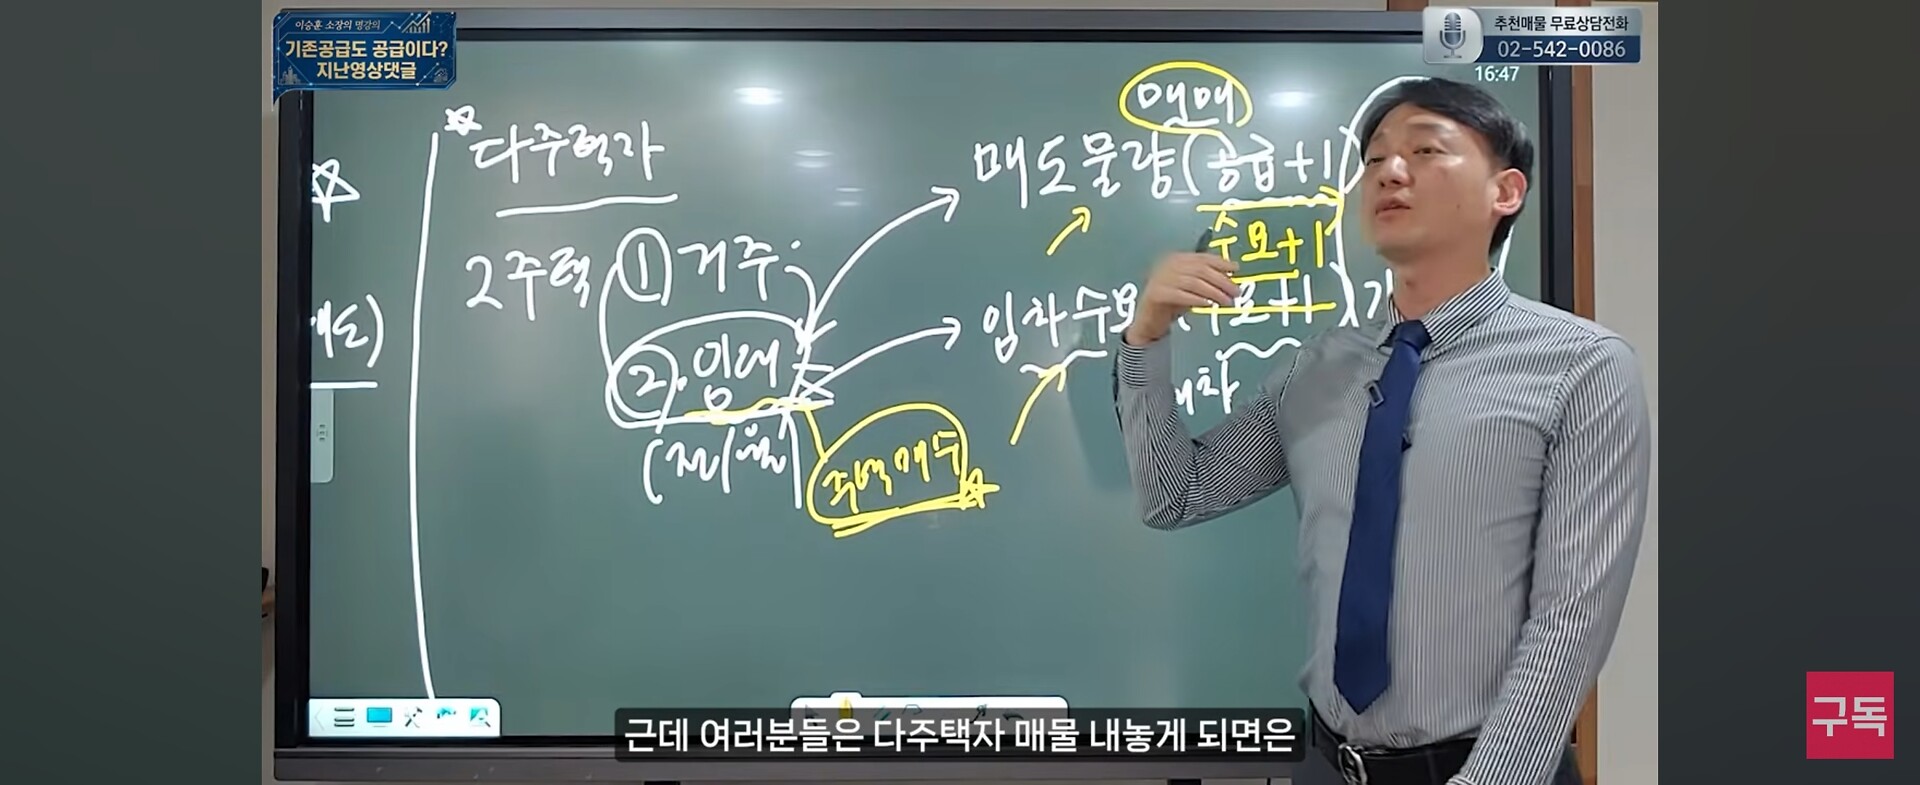 이승훈 소장의 명강의
기존공급도 공급이다?
지난영상댓글
추천매물 무료상담전화
02-542-0086
16:47
다주택자
2주택 ① 거주
② 임대
(전/월
주택매수
매매
매도물량(공급+1)
수요+1
임차수요
수요+1
근데 여러분들은 다주택자 매물 내놓게 되면은
구독